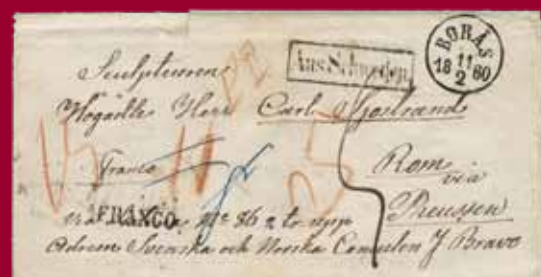 BORÅS
11
18 2 60
Aus Schweden
Sculpteuren
Högädle Herr Carl Sjöstrand
Franco
Rom
via
FRANCO
Preussen
Adress Svenska och Norska Consulen J Bravo